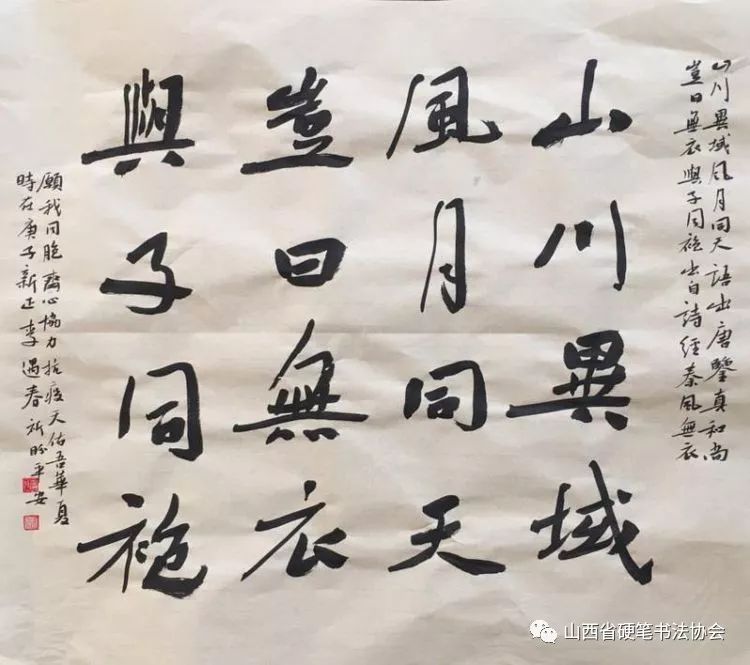 山川異域風月同天語出唐鑒真和尚
豈曰無衣與子同袍出自詩經秦風無衣
山川異域
風月同天
豈曰無衣
與子同袍
願我同胞齊心協力抗疫天佑吾華夏
時在庚子新正李遇春祈盼平安
山西省硬笔书法协会